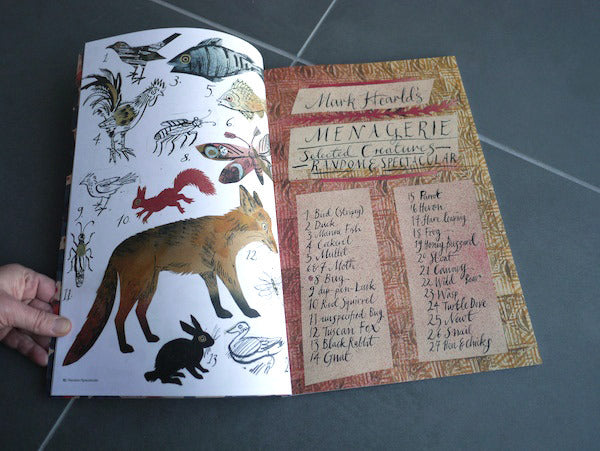 1.
3.
4.
5.
6.
8.
9
10.
11.
12.
13
Random Spectacular
Mark Hearld's
MENAGERIE
Selected Creatures
RANDOM & SPECTACULAR
1 Bird (Stripey)
2 Duck
3 Marine Fish
4 Cockerel
5 Mullet
6 & 7 Moth
8 Bug
9 dip-pen-Duck
10 Red Squirrel
11 unspecified Bug
12 Tuscan Fox
13 Black Rabbit
14 Gnat
15 Parrot
16 Heron
17 Hare leaping
18 Frog
19 Honey Buzzard
20 Stoat
21 Conway
22 Wild "Boar"
23 Wasp
24 Turtle Dove
25 Newt
26 Snail
27 Hen & chicks